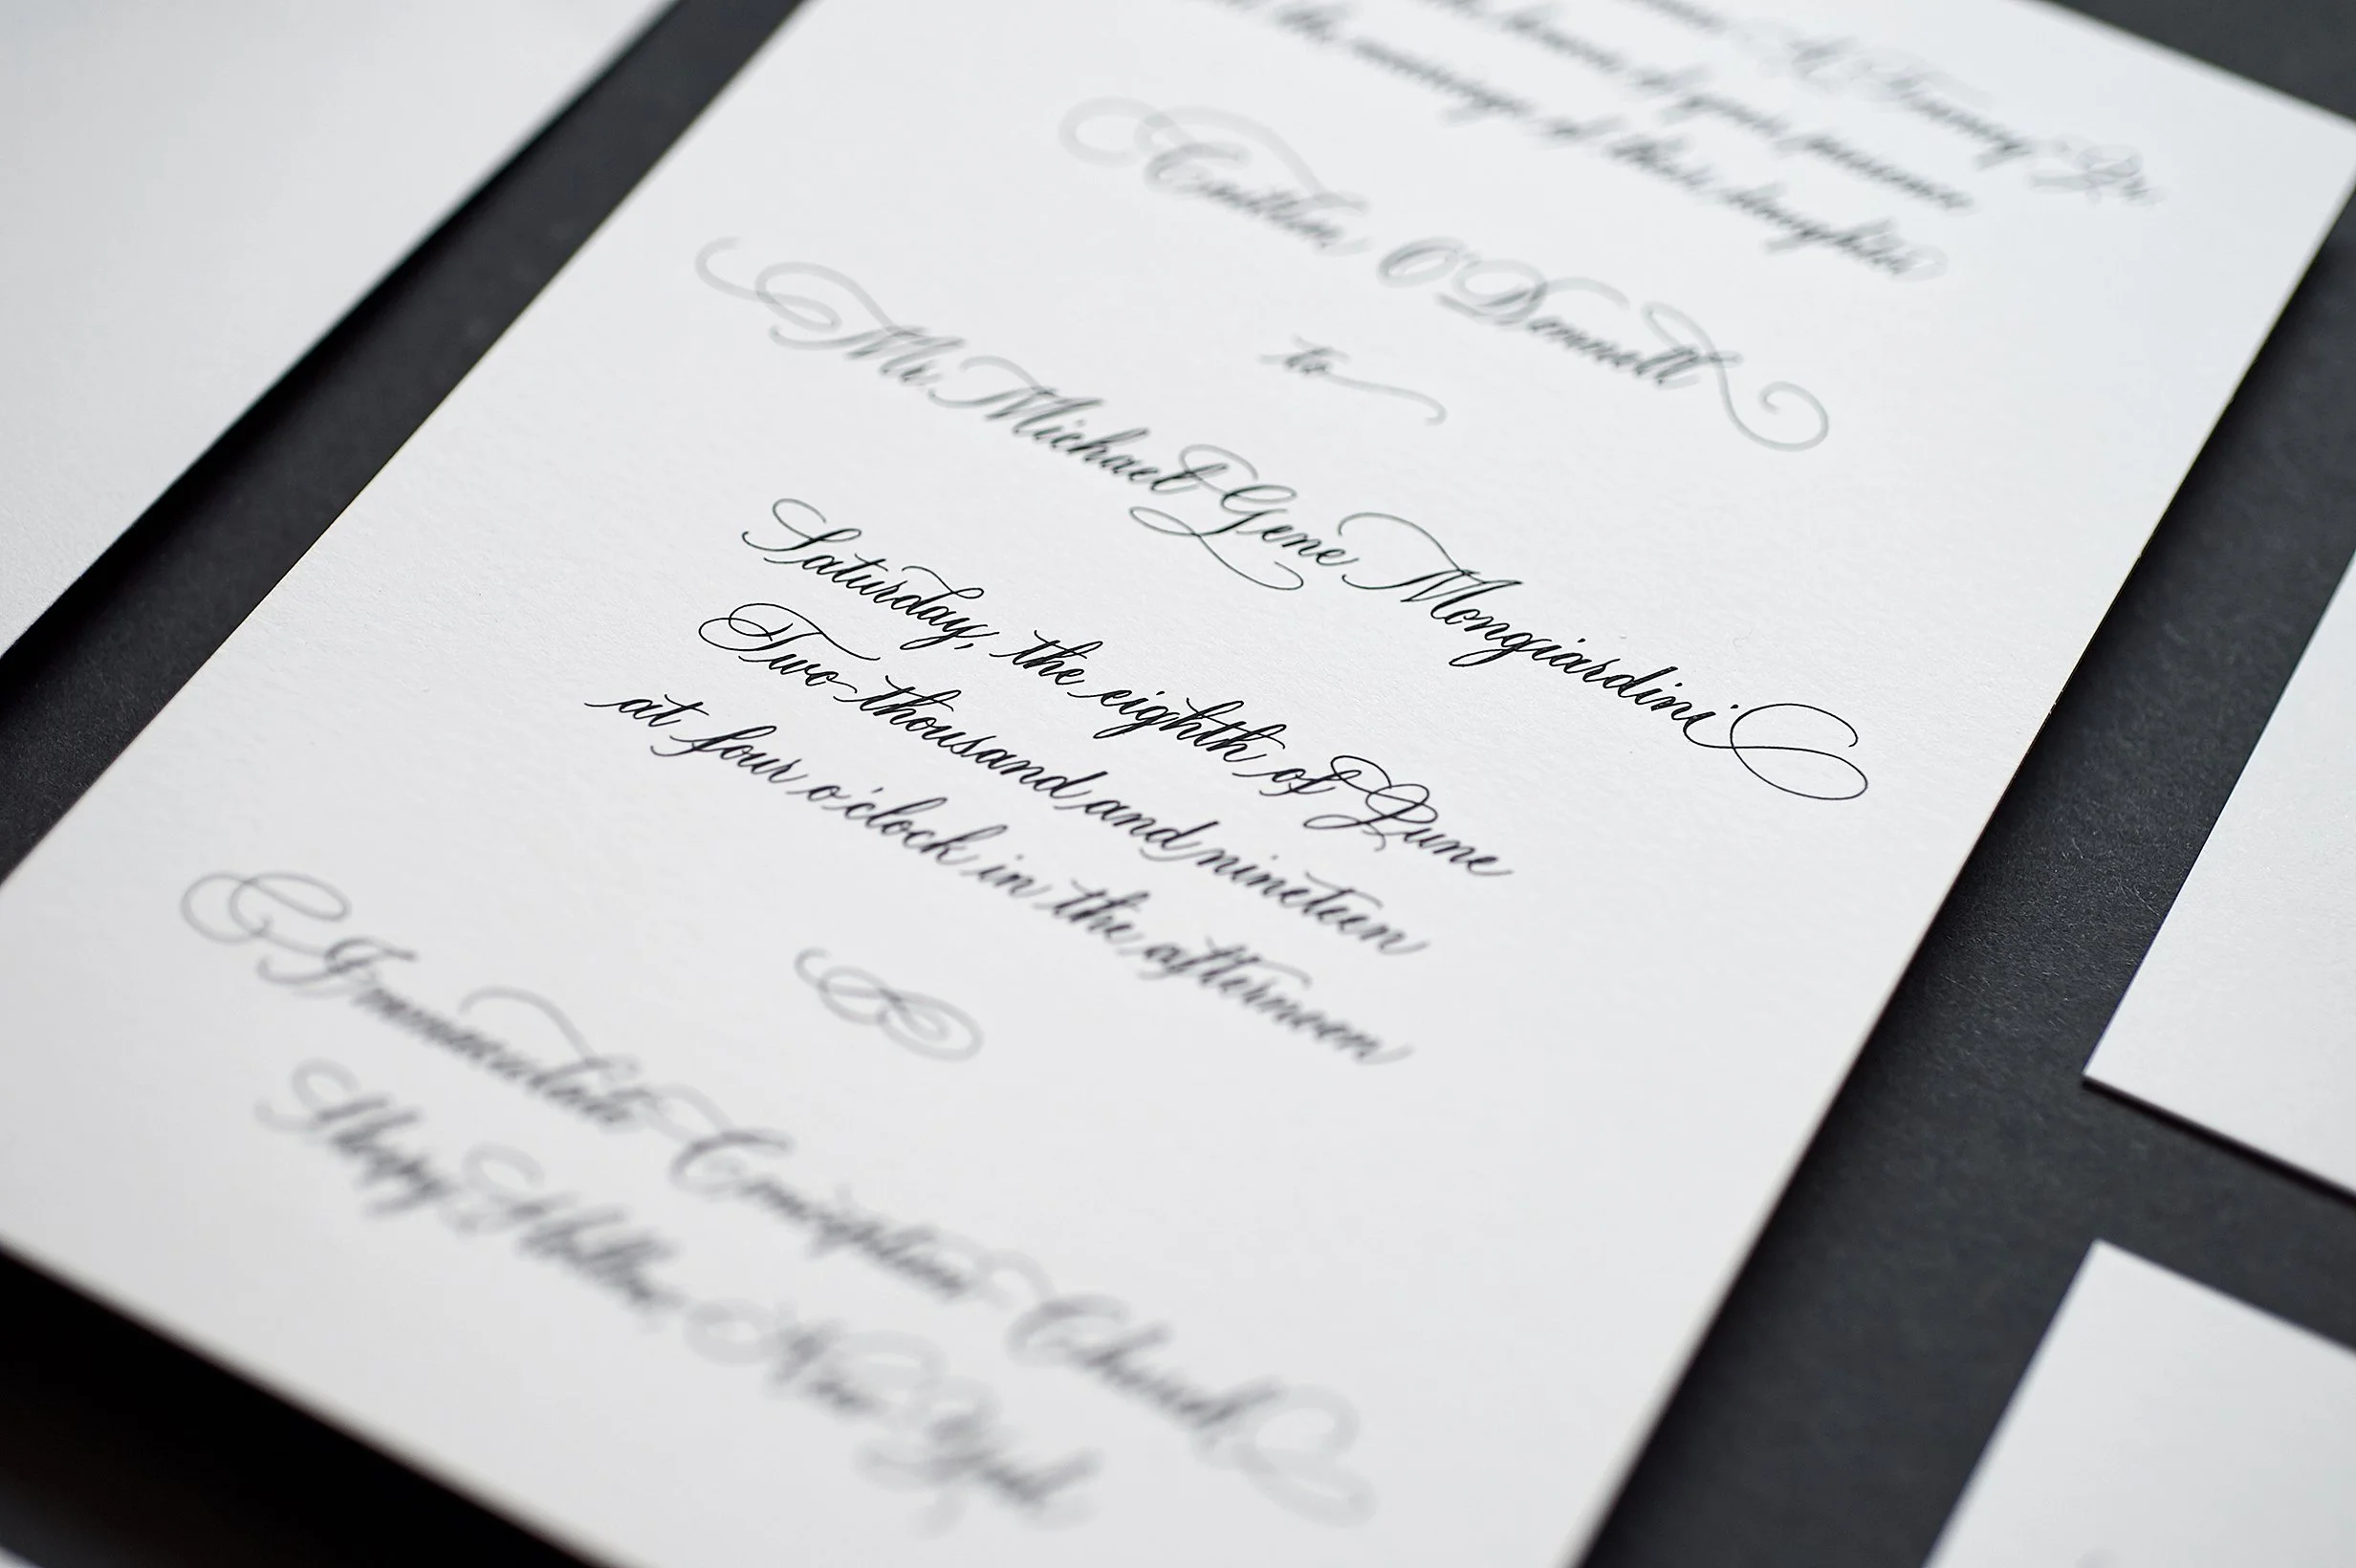 honour of your presence
the marriage of their daughter
Caitlin O'Donnell
to
Mr. Michael Gene Mongiardini
Saturday, the eighth of June
Two thousand and nineteen
at four o'clock in the afternoon
Immaculate Conception Church
Sleepy Hollow, New York